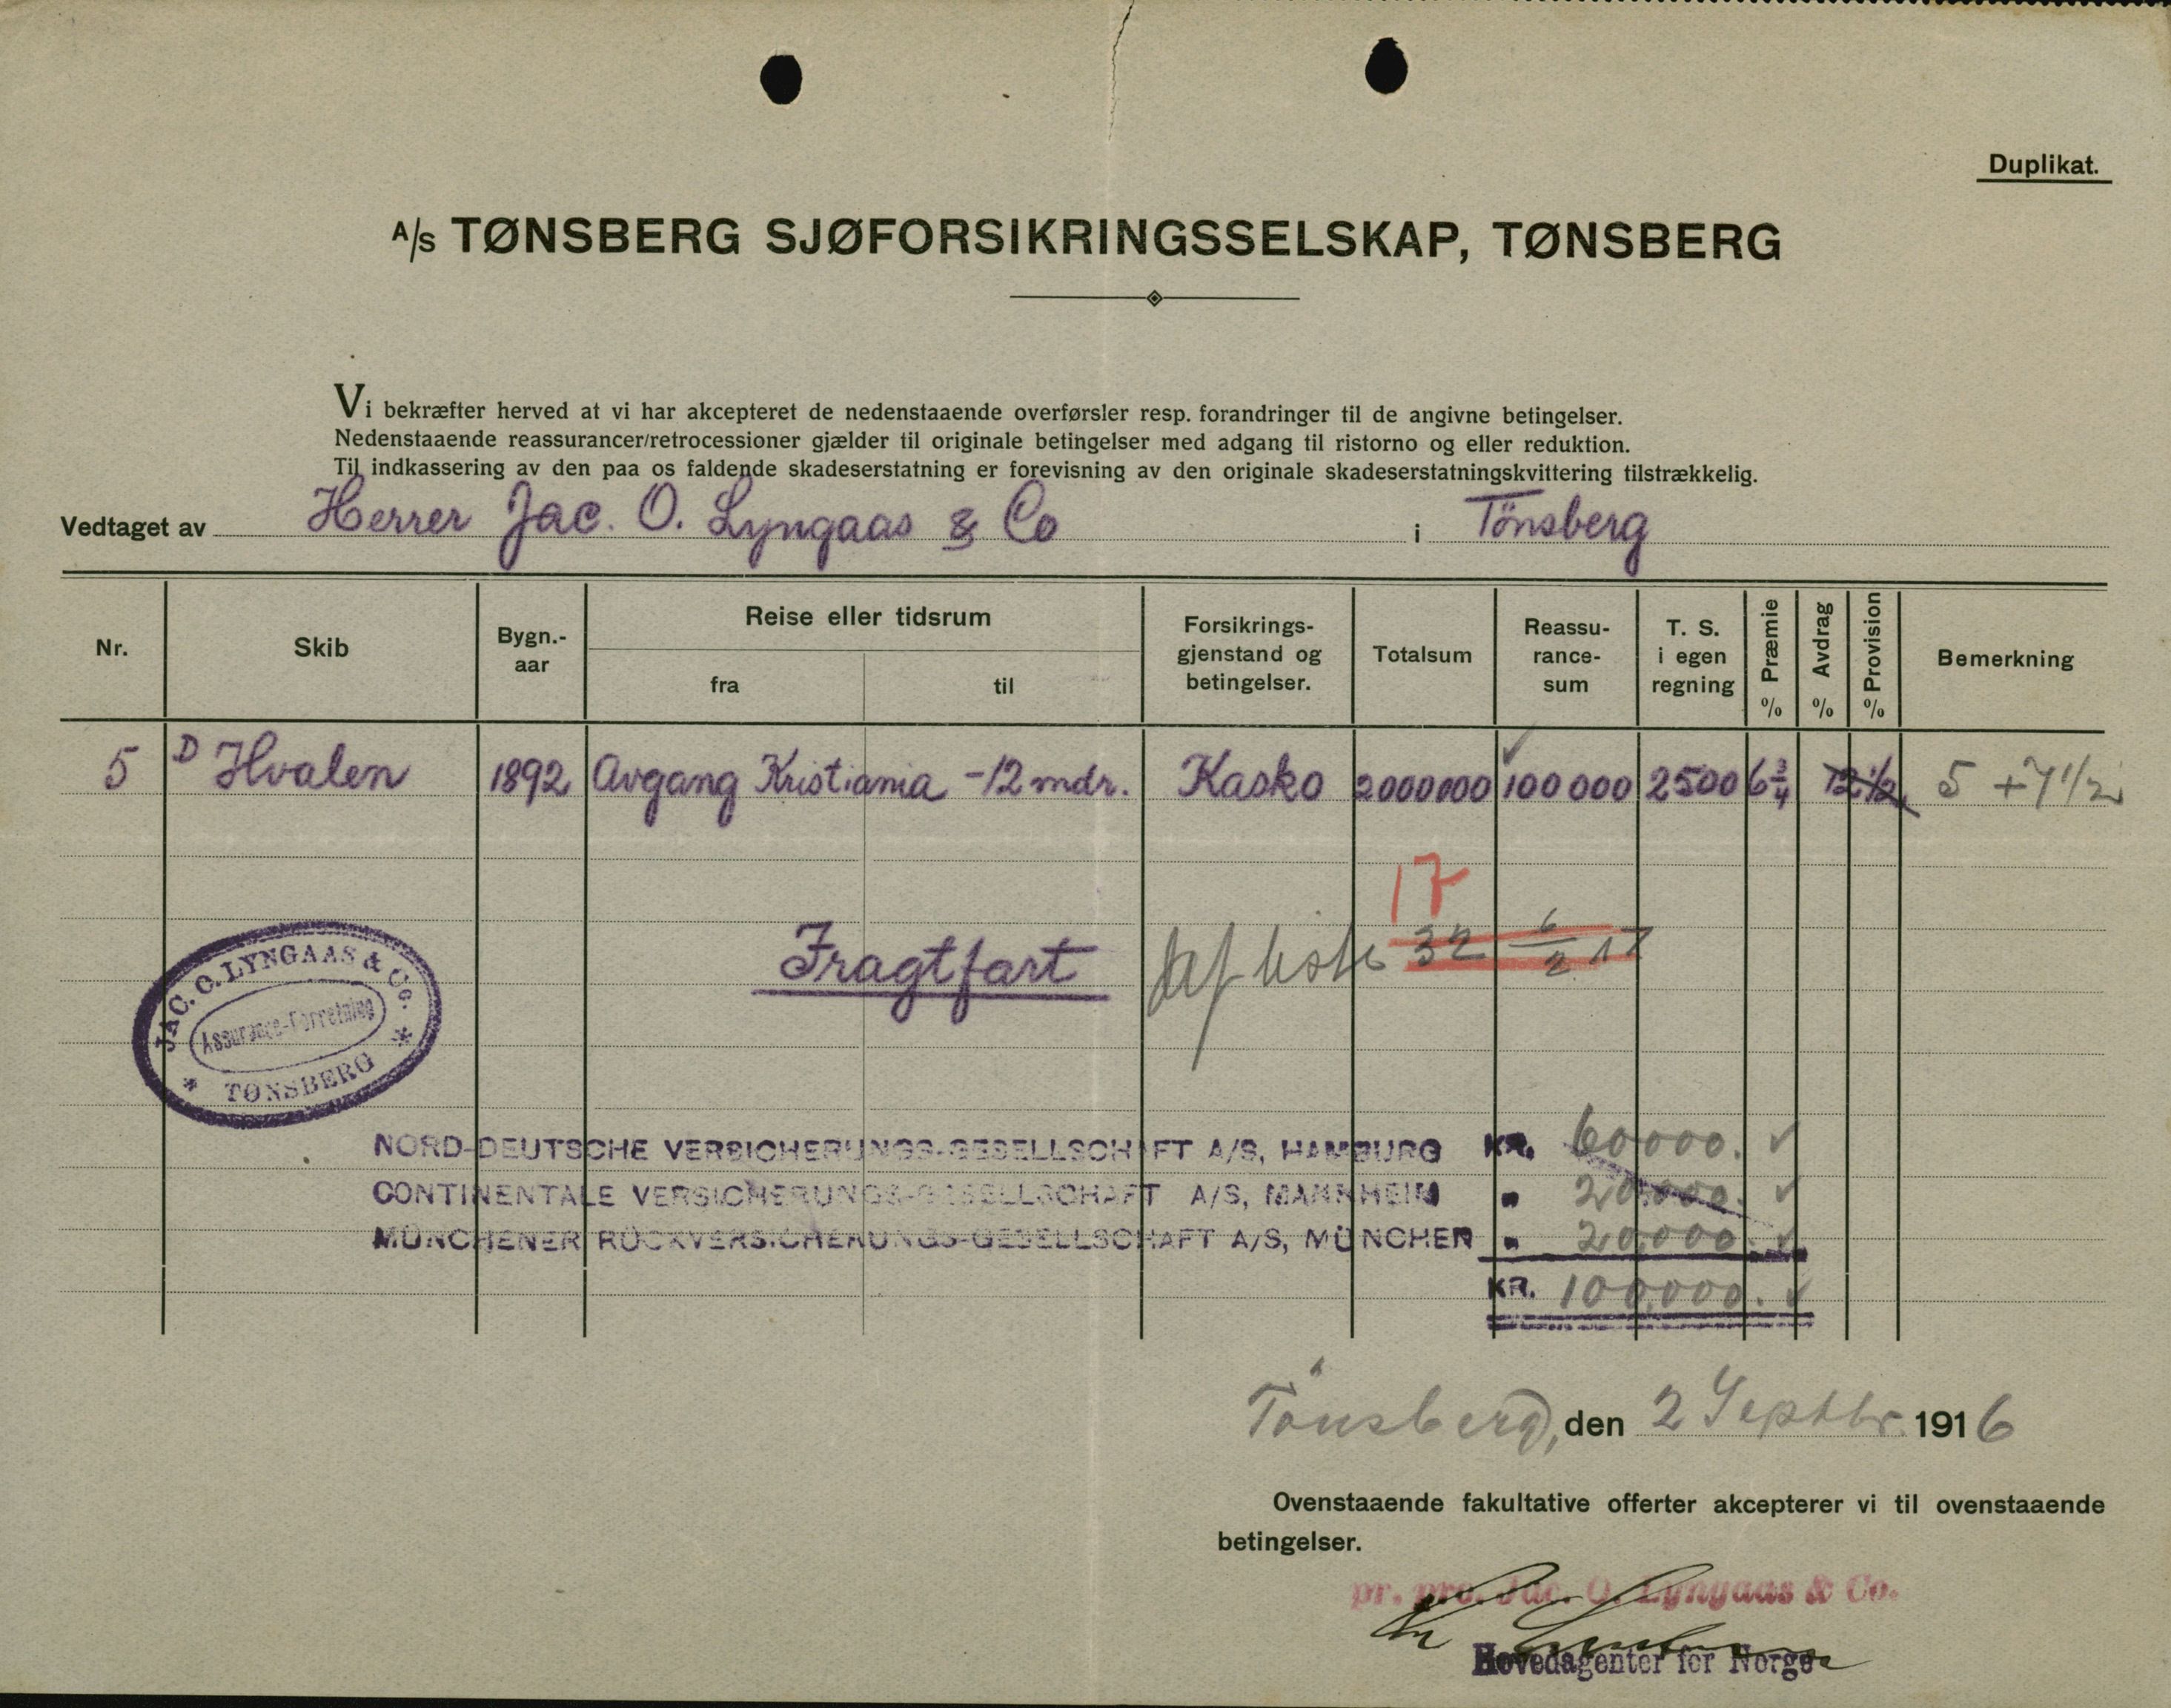 Duplikat.
A/S TØNSBERG SJØFORSIKRINGSSELSKAP, TØNSBERG
Vi bekræfter herved at vi har akcepteret de nedenstaaende overførsler resp. forandringer til de angivne betingelser.
Nedenstaaende reassurancer/retrocessioner gjælder til originale betingelser med adgang til ristorno og eller reduktion.
Til indkassering av den paa os faldende skadeserstatning er forevisning av den originale skadeserstatningskvittering tilstrækkelig.
Vedtaget av Herrer Jac. O. Lyngaas & Co i Tönsberg
Nr. Skib Bygn.-aar Reise eller tidsrum fra til Forsikrings-gjenstand og betingelser. Totalsum Reassu-rance-sum T. S. i egen regning % Præmie % Avdrag % Provision Bemerkning
5 D Hvalen 1892 Avgang Kristiania - 12 mdr. Kasko 2000000 100 000 2500 6 3/4 12 1/2 5 + 7 1/2
17
Fragtfart 32 6/2 17
JAC. O. LYNGAAS & Co.
Assurance-Forretning
* TØNSBERG *
NORD-DEUTSCHE VERSICHERUNGS-GESELLSCHAFT A/S, HAMBURG KR. 60000.
CONTINENTALE VERSICHERUNGS-GESELLSCHAFT A/S, MANNHEIM " 20.000.
MÜNCHENER RÜCKVERSICHERUNGS-GESELLSCHAFT A/S, MÜNCHEN " 20.000.
KR. 100.000.
Tönsberg, den 2 Septbr. 1916
Ovenstaaende fakultative offerter akcepterer vi til ovenstaaende
betingelser.
pr. pro. Jac. O. Lyngaas & Co.
Hovedagenter for Norge